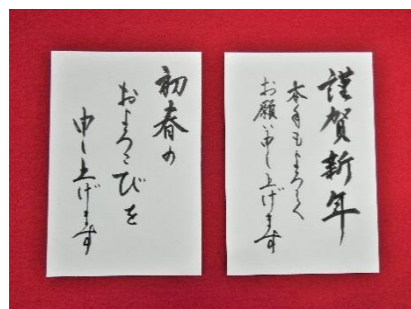 謹賀新年
本年もよろしく
お願い申し上げます
初春の
およろこびを
申し上げます